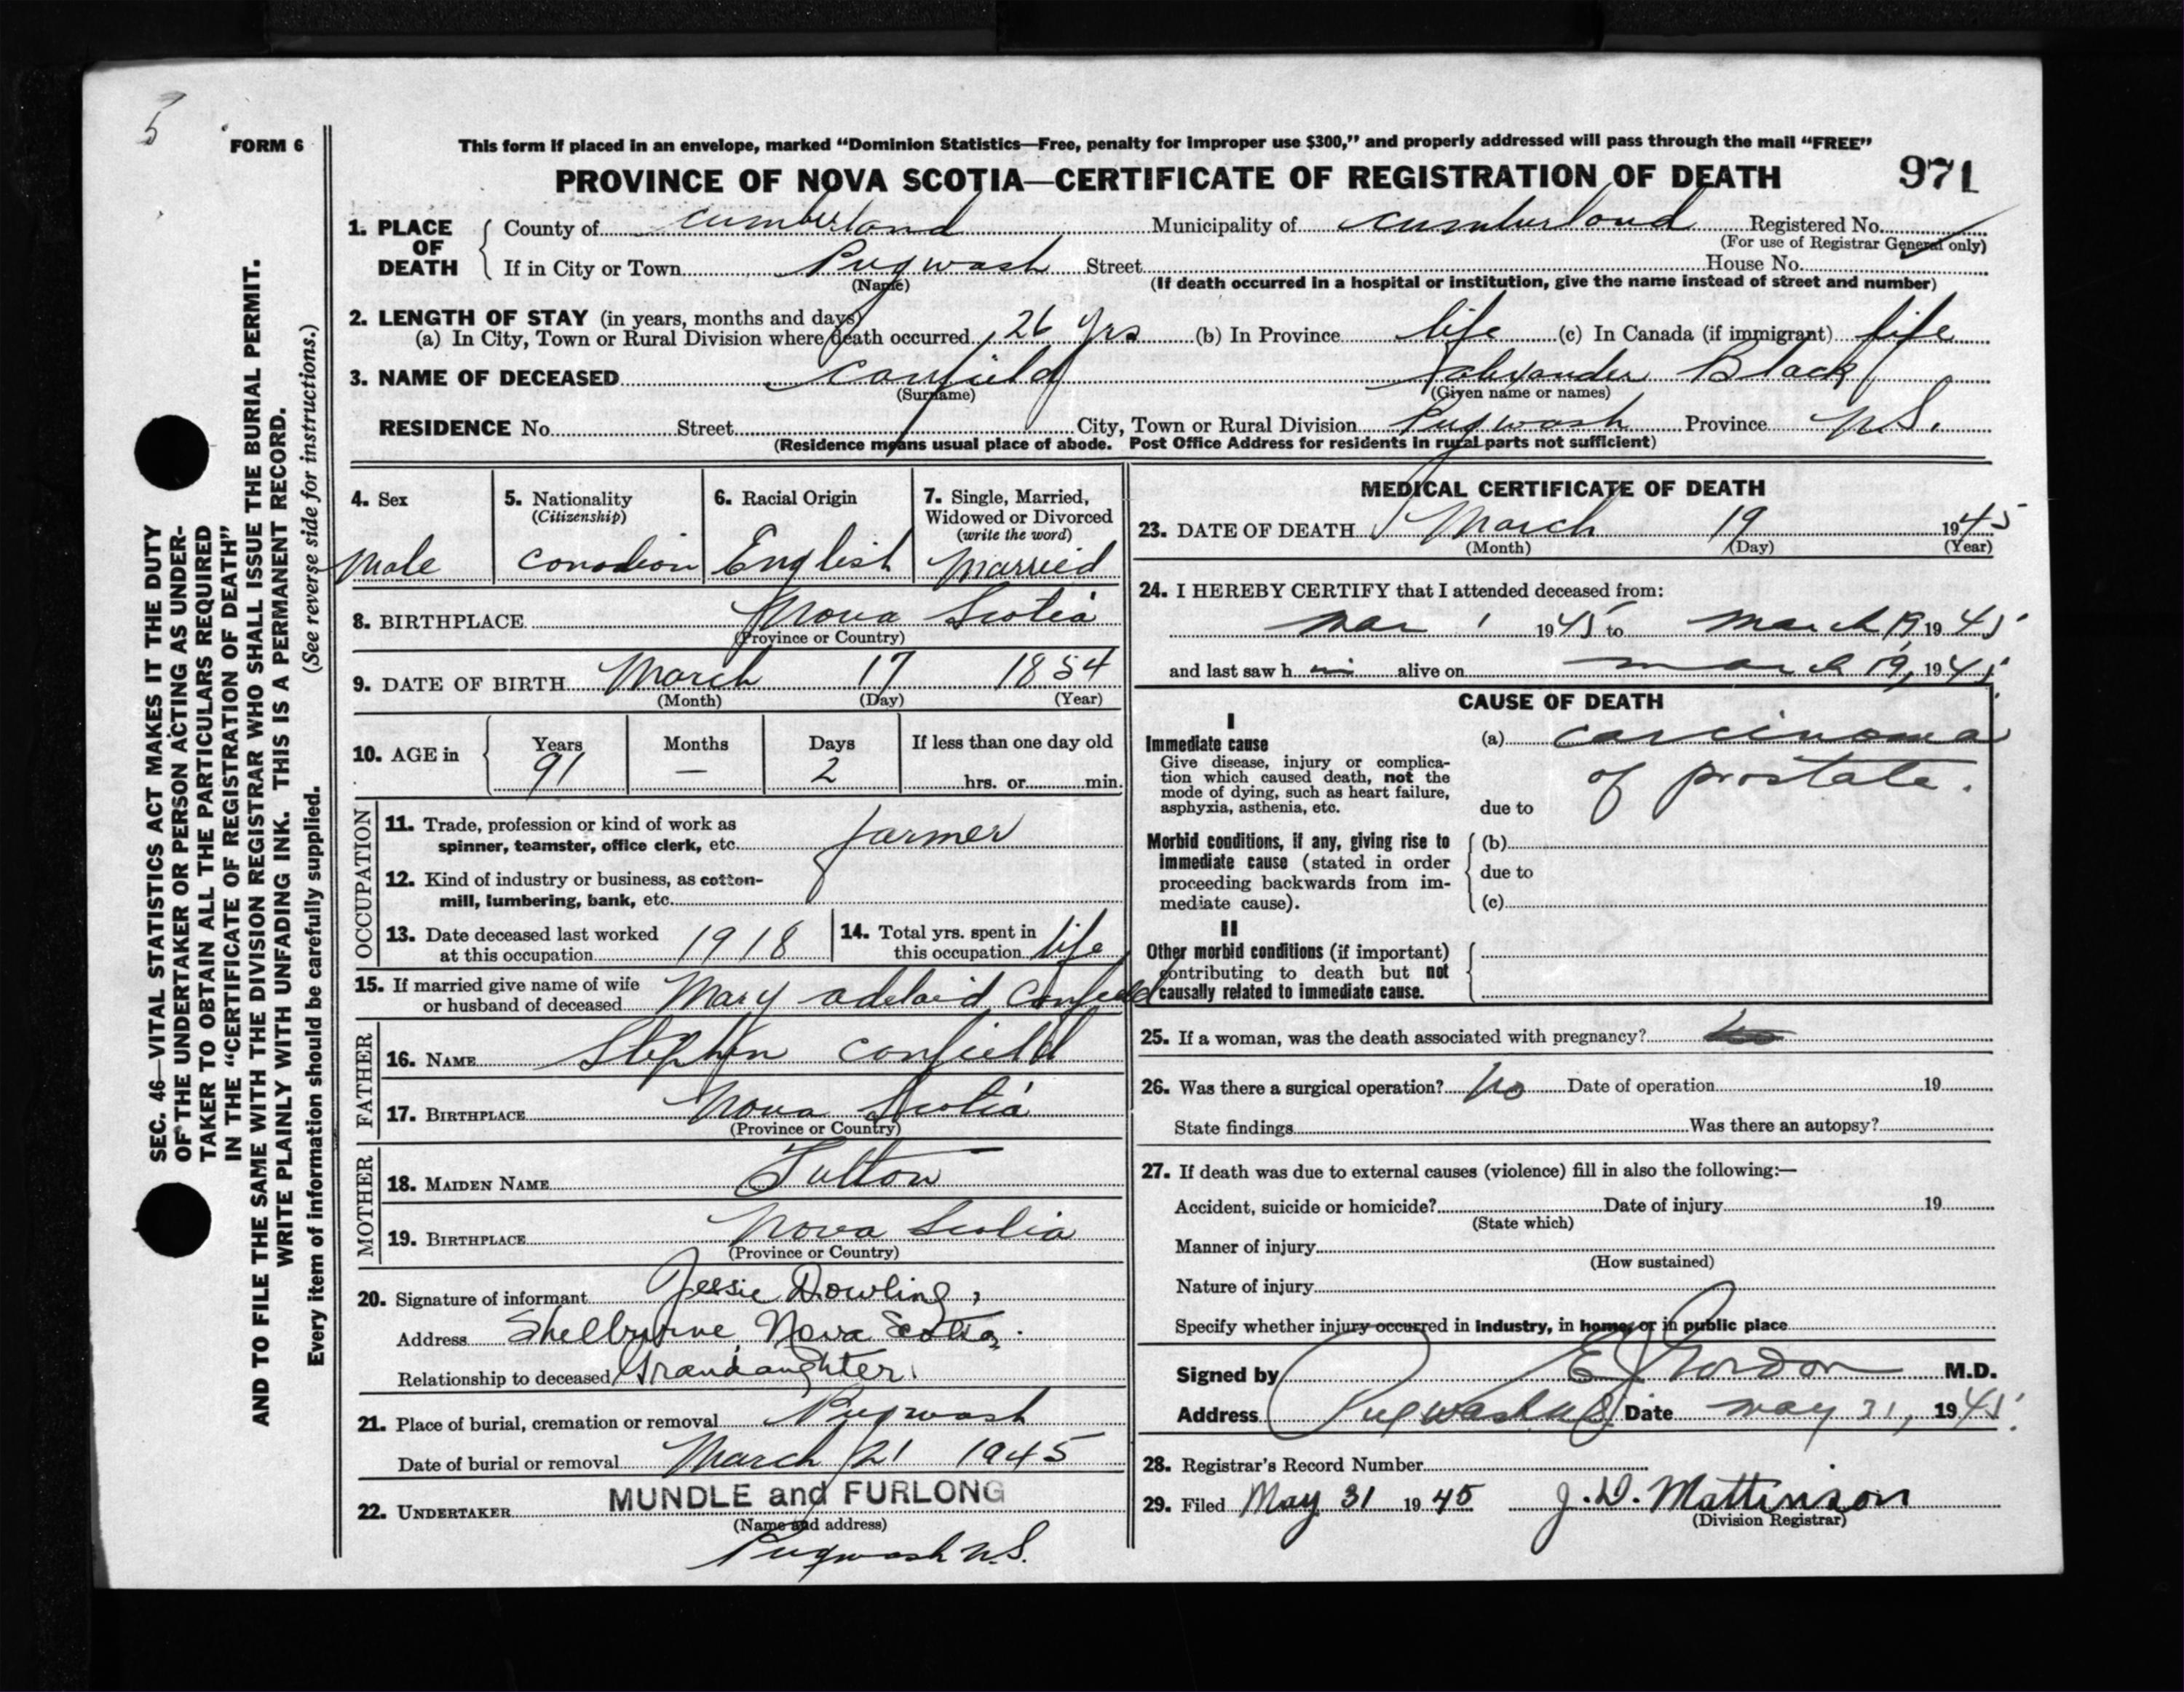 5
FORM 6
This form if placed in an envelope, marked “Dominion Statistics—Free, penalty for improper use $300,” and properly addressed will pass through the mail “FREE”
PROVINCE OF NOVA SCOTIA—CERTIFICATE OF REGISTRATION OF DEATH 971
1. PLACE OF DEATH County of Cumberland Municipality of Cumberland Registered No.
(For use of Registrar General only)
If in City or Town Pugwash Street House No.
(Name) (If death occurred in a hospital or institution, give the name instead of street and number)
2. LENGTH OF STAY (in years, months and days)
(a) In City, Town or Rural Division where death occurred 26 yrs (b) In Province life (c) In Canada (if immigrant) life
3. NAME OF DECEASED Canfield Alexander Black
(Surname) (Given name or names)
RESIDENCE No. Street City, Town or Rural Division Pugwash Province N.S.
(Residence means usual place of abode. Post Office Address for residents in rural parts not sufficient)
4. Sex
Male
5. Nationality
(Citizenship)
Canadian
6. Racial Origin
English
7. Single, Married,
Widowed or Divorced
(write the word)
Married
8. BIRTHPLACE Nova Scotia
(Province or Country)
9. DATE OF BIRTH March 17 1854
(Month) (Day) (Year)
10. AGE in Years Months Days If less than one day old
91 — 2 hrs. or min.
OCCUPATION
11. Trade, profession or kind of work as
spinner, teamster, office clerk, etc. farmer
12. Kind of industry or business, as cotton-
mill, lumbering, bank, etc.
13. Date deceased last worked
at this occupation 1918
14. Total yrs. spent in
this occupation life
15. If married give name of wife
or husband of deceased Mary Adelaid Canfield
FATHER
16. NAME Stephen Canfield
17. BIRTHPLACE Nova Scotia
(Province or Country)
MOTHER
18. MAIDEN NAME Fulton
19. BIRTHPLACE Nova Scotia
(Province or Country)
20. Signature of informant Jessie Dowling,
Address Shelburne, Nova Scotia.
Relationship to deceased Grandaughter.
21. Place of burial, cremation or removal Pugwash
Date of burial or removal March 21 1945
22. UNDERTAKER MUNDLE and FURLONG
(Name and address)
Pugwash N.S.
MEDICAL CERTIFICATE OF DEATH
23. DATE OF DEATH March 19 1945
(Month) (Day) (Year)
24. I HEREBY CERTIFY that I attended deceased from:
Mar 1 1945 to March 19, 1945
and last saw h im alive on March 19, 1945
CAUSE OF DEATH
I
Immediate cause
Give disease, injury or complica-
tion which caused death, not the
mode of dying, such as heart failure,
asphyxia, asthenia, etc.
(a) carcinoma
of prostate.
due to
Morbid conditions, if any, giving rise to
immediate cause (stated in order
proceeding backwards from im-
mediate cause).
(b)
due to
(c)
II
Other morbid conditions (if important)
contributing to death but not
causally related to immediate cause.
25. If a woman, was the death associated with pregnancy?
26. Was there a surgical operation? No Date of operation 19
State findings Was there an autopsy?
27. If death was due to external causes (violence) fill in also the following:—
Accident, suicide or homicide? Date of injury 19
(State which)
Manner of injury
(How sustained)
Nature of injury
Specify whether injury occurred in industry, in home, or in public place
Signed by E J Gordon M.D.
Address Pugwash N S Date May 31, 1945
28. Registrar's Record Number
29. Filed May 31 1945 J. D. Mattinson
(Division Registrar)
SEC. 46—VITAL STATISTICS ACT MAKES IT THE DUTY
OF THE UNDERTAKER OR PERSON ACTING AS UNDER-
TAKER TO OBTAIN ALL THE PARTICULARS REQUIRED
IN THE “CERTIFICATE OF REGISTRATION OF DEATH”
AND TO FILE THE SAME WITH THE DIVISION REGISTRAR WHO SHALL ISSUE THE BURIAL PERMIT.
WRITE PLAINLY WITH UNFADING INK. THIS IS A PERMANENT RECORD.
Every item of information should be carefully supplied. (See reverse side for instructions.)